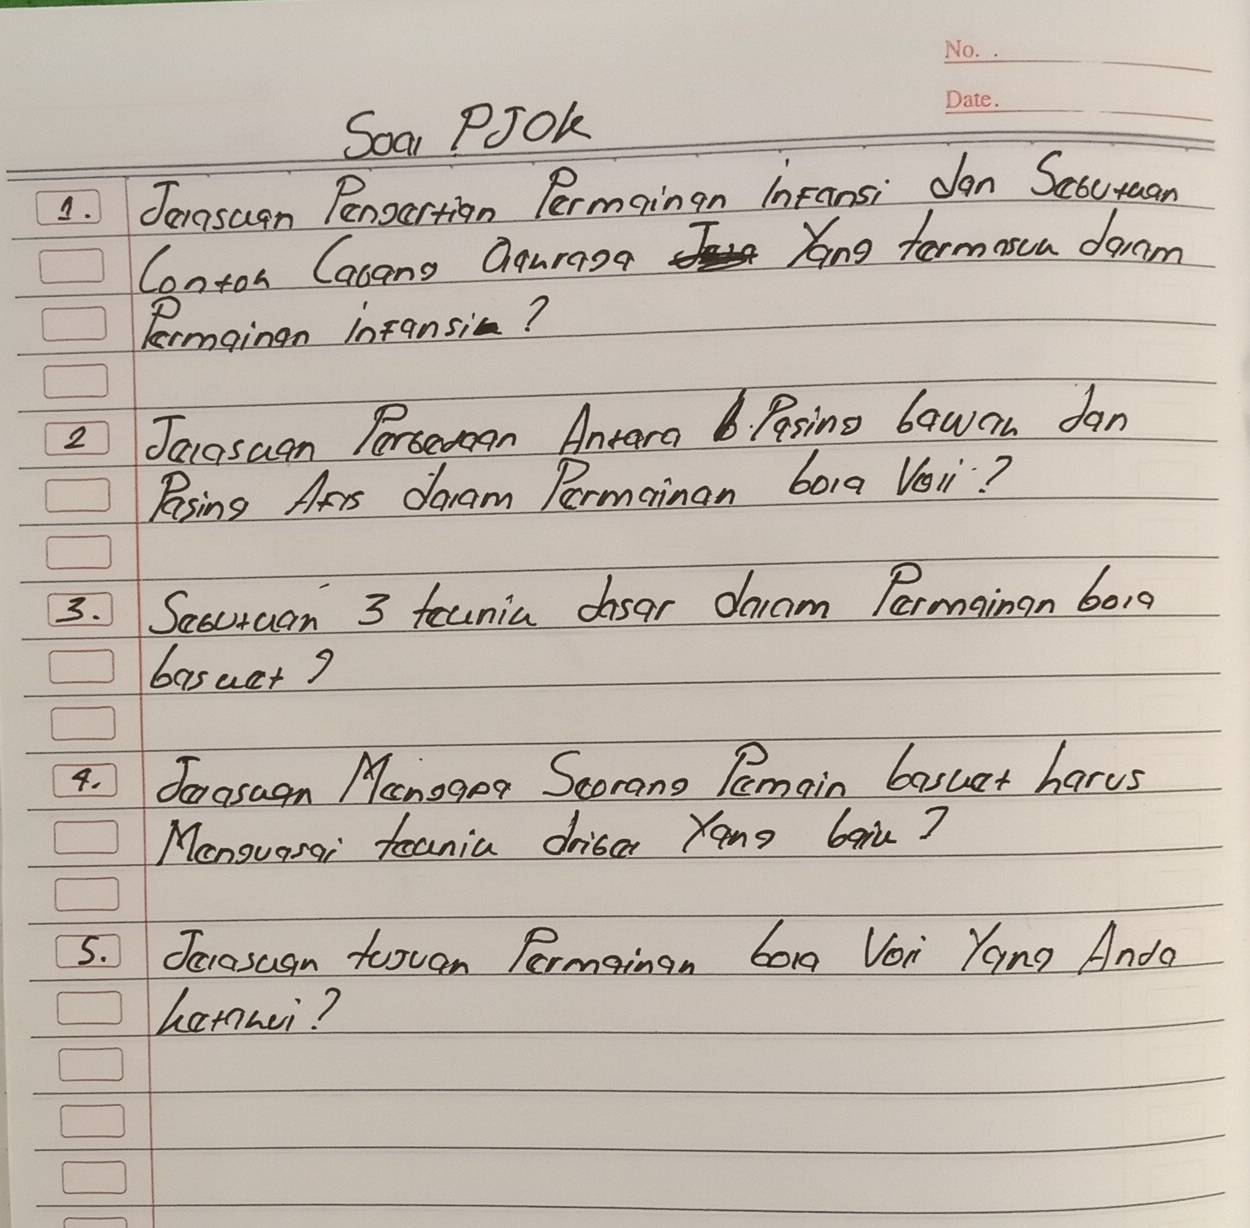 No. .
Date.
Soal PJOK
1. Jelaskan Pengertian Permainan Infansi dan Sebutkan
Contoh Cabang Olahraga Yang termasuk dalam
Permainan infansi ?
2 Jelaskan Perbedaan Antara Pasing bawah dan
Pasing Atas dalam Permainan bola Voli ?
3. Sebutkan 3 teknik dasar dalam Permainan bola
basket ?
4. Jelaskan Mengapa Seorang Pemain basket harus
Menguasai teknik dribel Yang baik ?
5. Jelaskan tujuan Permainan bola Voli Yang Anda
ketahui ?